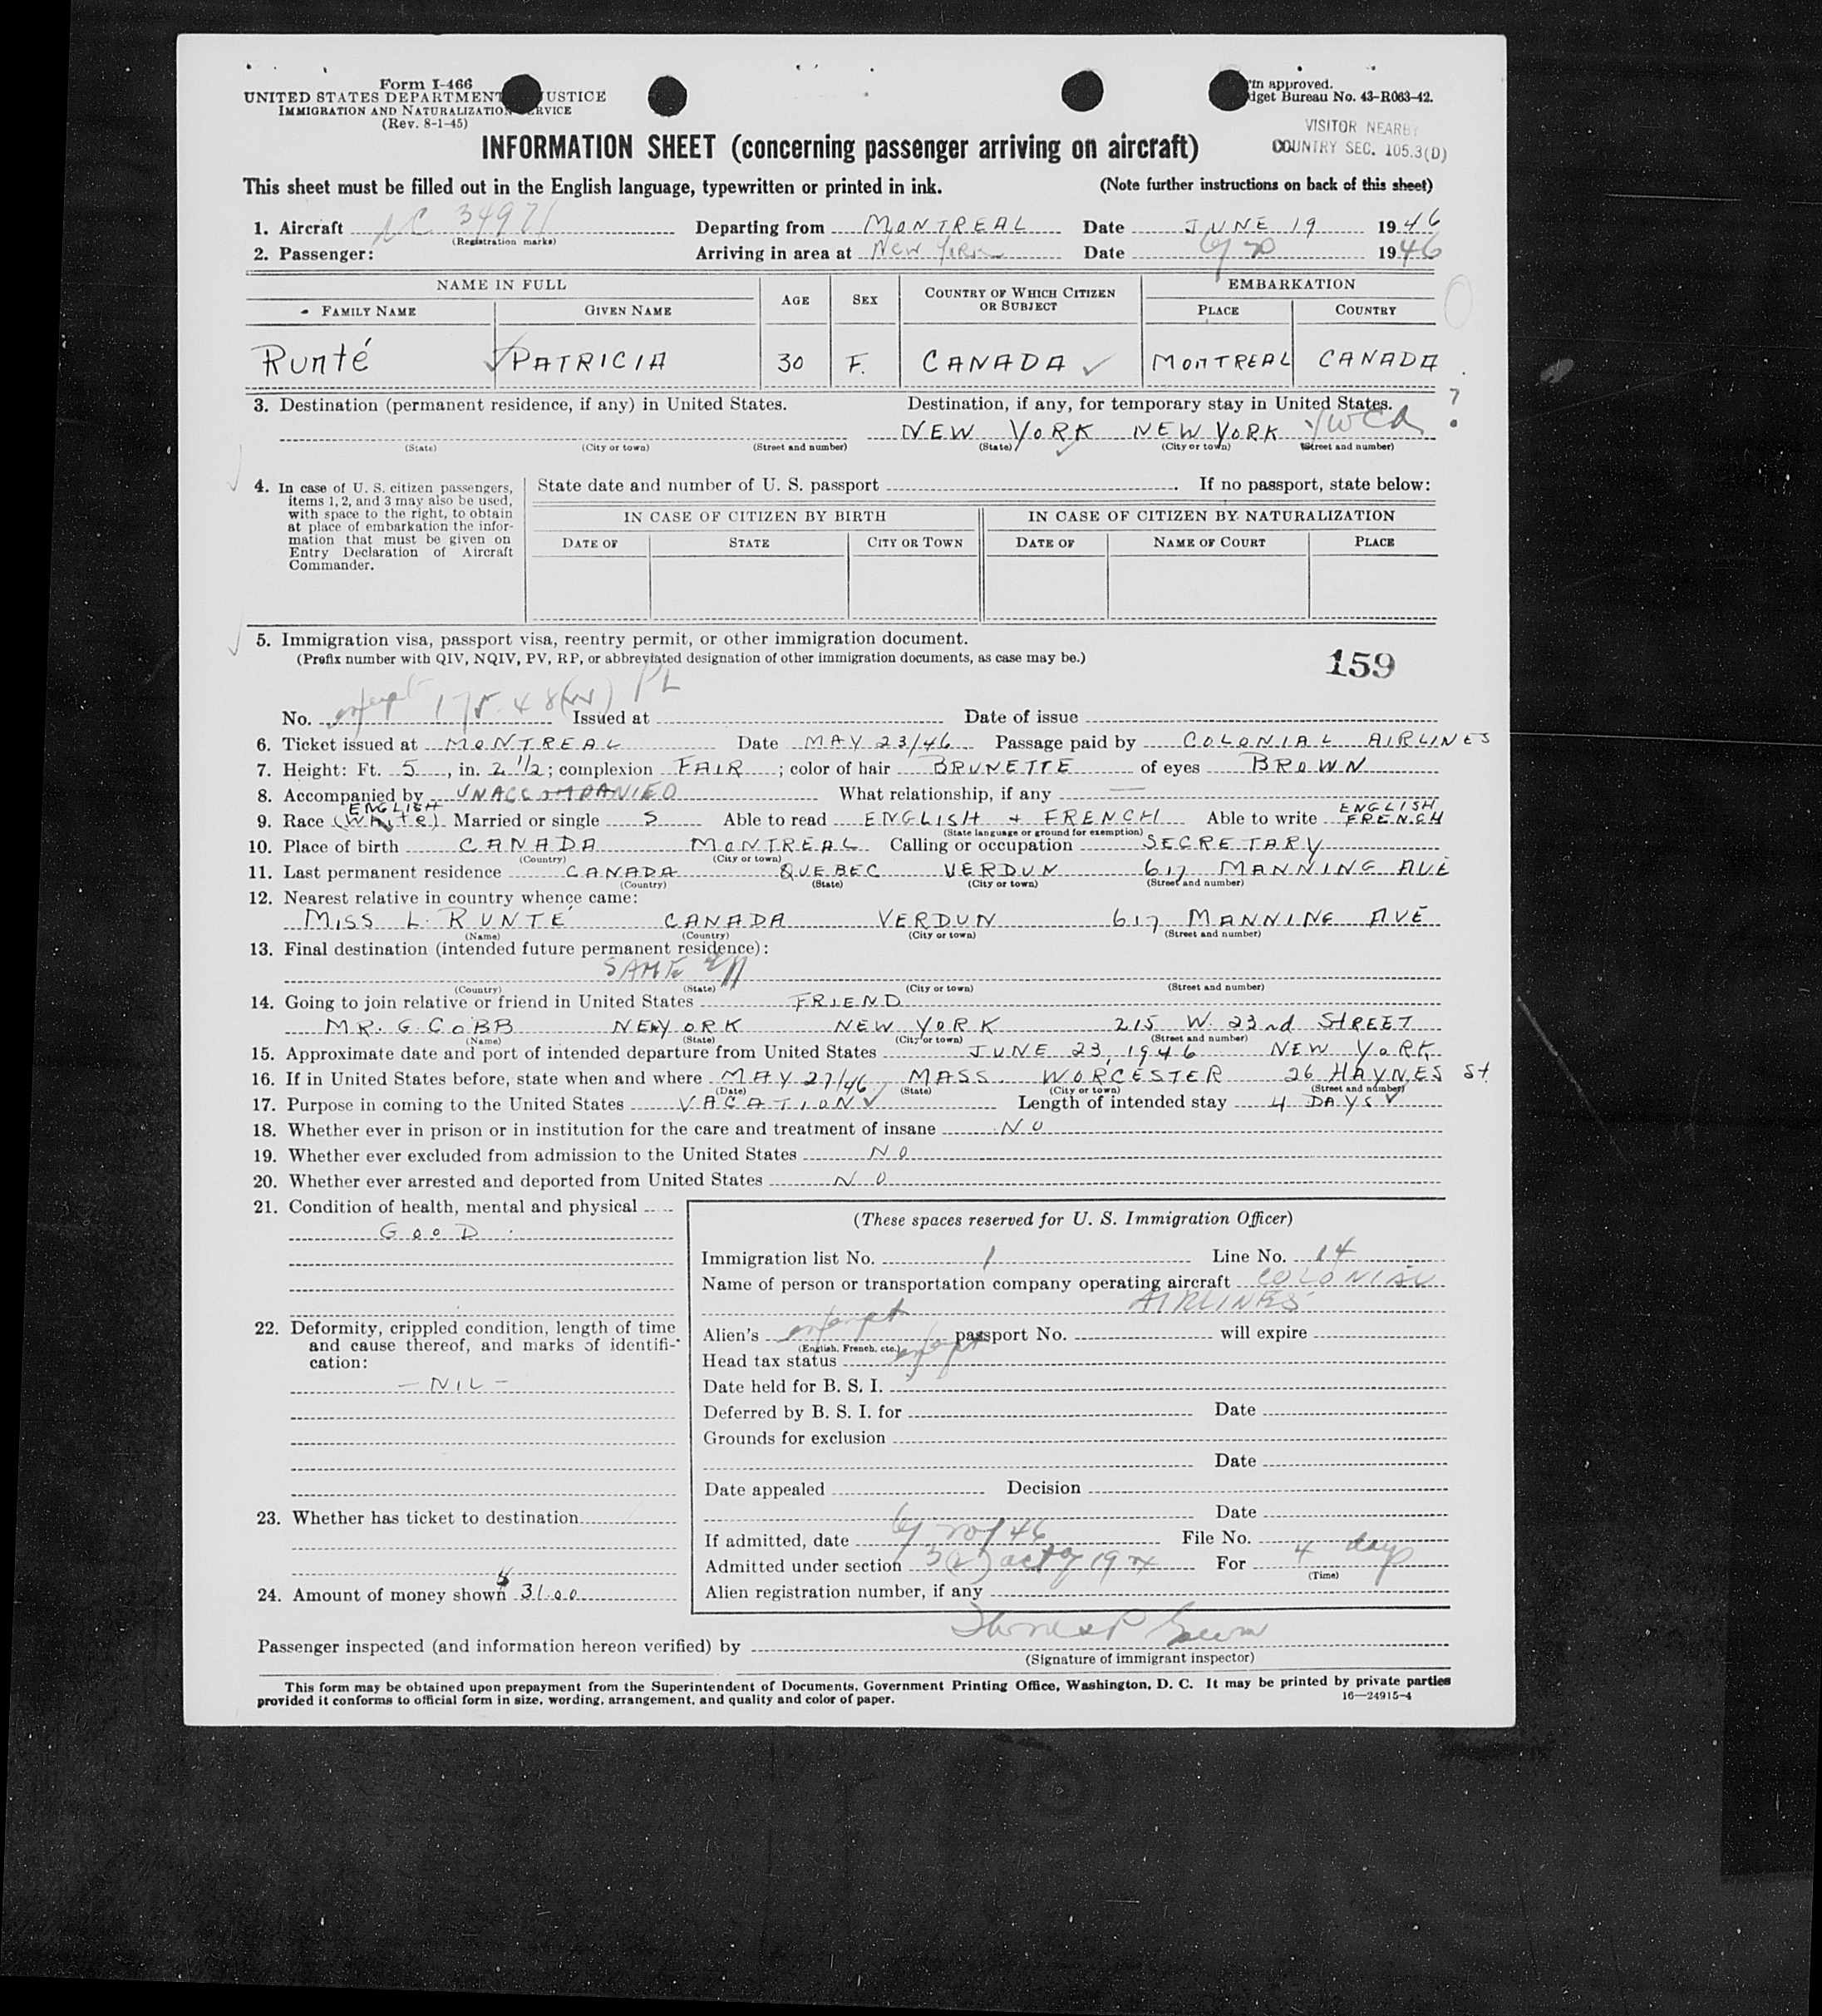 Form I-466
UNITED STATES DEPARTMENT JUSTICE
IMMIGRATION AND NATURALIZATION SERVICE
(Rev. 8-1-45)
approved.
Bureau No. 43-R063-42.
VISITOR NEARBY
COUNTRY SEC. 105.3(D)
INFORMATION SHEET (concerning passenger arriving on aircraft)
This sheet must be filled out in the English language, typewritten or printed in ink. (Note further instructions on back of this sheet)
1. Aircraft NC 34971 Departing from MONTREAL Date JUNE 19 1946
(Registration marks)
2. Passenger: Arriving in area at New York Date 6/20 1946
NAME IN FULL AGE SEX COUNTRY OF WHICH CITIZEN OR SUBJECT EMBARKATION
FAMILY NAME GIVEN NAME PLACE COUNTRY
Runté PATRICIA 30 F. CANADA MONTREAL CANADA
3. Destination (permanent residence, if any) in United States. Destination, if any, for temporary stay in United States. ?
NEW YORK NEW YORK YWCA
(State) (City or town) (Street and number) (State) (City or town) (Street and number)
4. In case of U. S. citizen passengers, items 1, 2, and 3 may also be used, with space to the right, to obtain at place of embarkation the information that must be given on Entry Declaration of Aircraft Commander.
State date and number of U. S. passport If no passport, state below:
IN CASE OF CITIZEN BY BIRTH IN CASE OF CITIZEN BY NATURALIZATION
DATE OF STATE CITY OR TOWN DATE OF NAME OF COURT PLACE
5. Immigration visa, passport visa, reentry permit, or other immigration document.
(Prefix number with QIV, NQIV, PV, RP, or abbreviated designation of other immigration documents, as case may be.)
159
No. exempt 175.48 PL Issued at Date of issue
6. Ticket issued at MONTREAL Date MAY 23/46 Passage paid by COLONIAL AIRLINES
7. Height: Ft. 5, in. 2 1/2; complexion FAIR; color of hair BRUNETTE of eyes BROWN
8. Accompanied by UNACCOMPANIED What relationship, if any —
9. Race ENGLISH (White) Married or single S Able to read ENGLISH + FRENCH Able to write ENGLISH FRENCH
(State language or ground for exemption)
10. Place of birth CANADA MONTREAL Calling or occupation SECRETARY
(Country) (City or town)
11. Last permanent residence CANADA QUEBEC VERDUN 617 MANNING AVE
(Country) (State) (City or town) (Street and number)
12. Nearest relative in country whence came:
MISS L. RUNTÉ CANADA VERDUN 617 MANNING AVE
(Name) (Country) (City or town) (Street and number)
13. Final destination (intended future permanent residence):
SAME #11
(Country) (State) (City or town) (Street and number)
14. Going to join relative or friend in United States FRIEND
MR. G. COBB NEW YORK NEW YORK 215 W. 23nd STREET
(Name) (State) (City or town) (Street and number)
15. Approximate date and port of intended departure from United States JUNE 23, 1946 NEW YORK
16. If in United States before, state when and where MAY 27/46 MASS. WORCESTER 26 HAYNES St
(Date) (State) (City or town) (Street and number)
17. Purpose in coming to the United States VACATION Length of intended stay 4 DAYS
18. Whether ever in prison or in institution for the care and treatment of insane NO
19. Whether ever excluded from admission to the United States NO
20. Whether ever arrested and deported from United States NO
21. Condition of health, mental and physical
GOOD
22. Deformity, crippled condition, length of time and cause thereof, and marks of identification:
- NIL -
23. Whether has ticket to destination
24. Amount of money shown $ 31.00
(These spaces reserved for U. S. Immigration Officer)
Immigration list No. 1 Line No. 14
Name of person or transportation company operating aircraft COLONIAL
AIRLINES
Alien's exempt passport No. will expire
(English, French, etc.)
Head tax status exempt
Date held for B. S. I.
Deferred by B. S. I. for Date
Grounds for exclusion
Date
Date appealed Decision
Date
If admitted, date 6/20/46 File No.
Admitted under section 3(2) act of 1924 For 4 days
(Time)
Alien registration number, if any
Passenger inspected (and information hereon verified) by
(Signature of immigrant inspector)
This form may be obtained upon prepayment from the Superintendent of Documents, Government Printing Office, Washington, D. C. It may be printed by private parties
provided it conforms to official form in size, wording, arrangement, and quality and color of paper. 16—24915-4